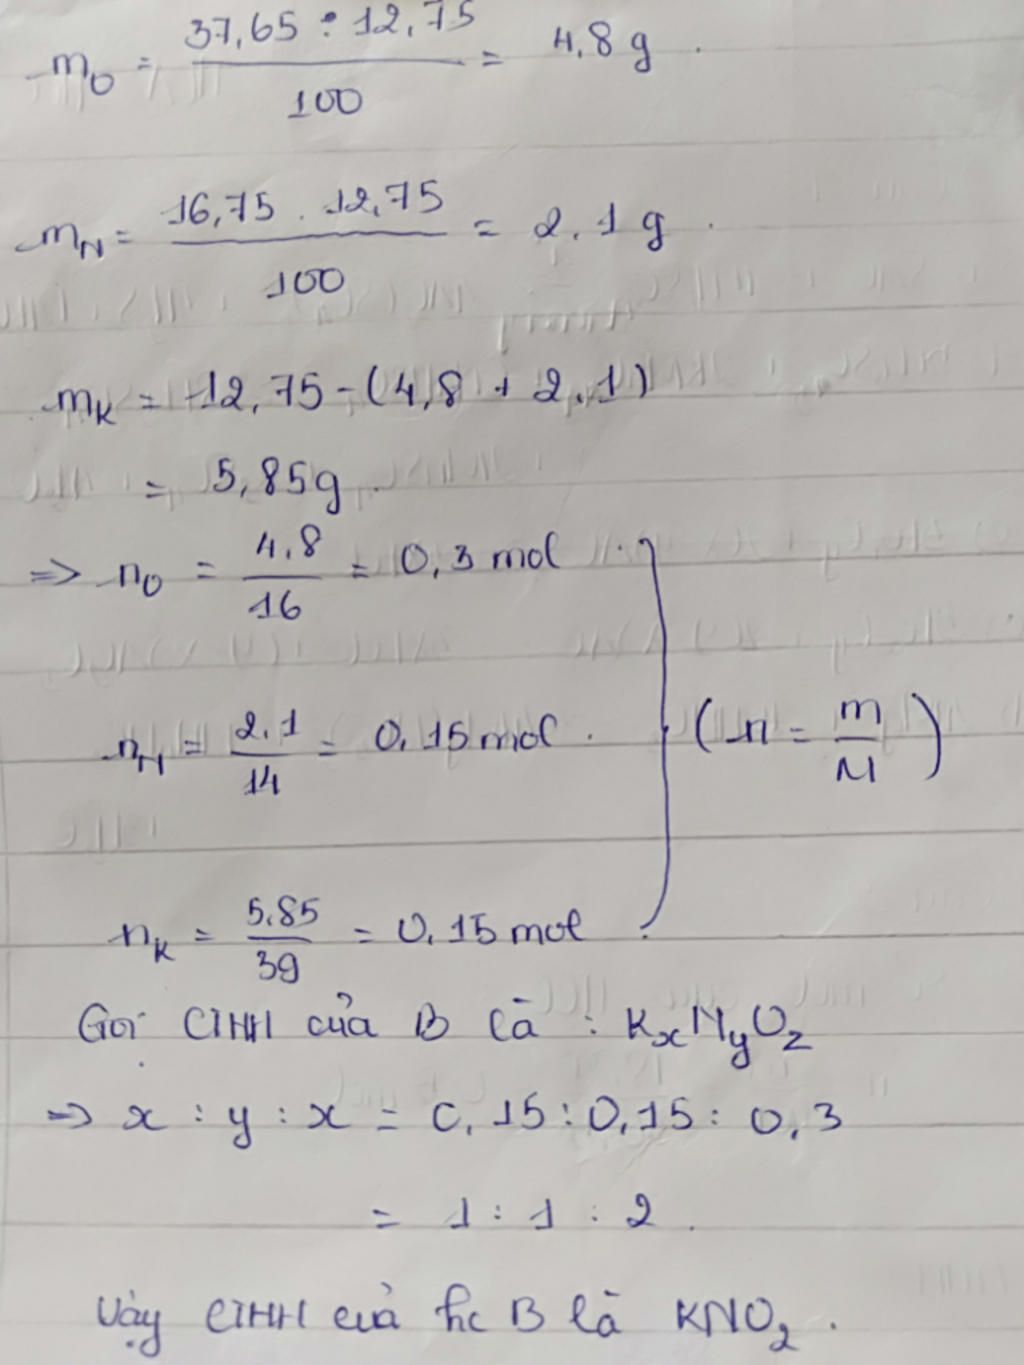 m_O = (37,65 : 12,75)/100 = 4,8 g.
m_N = (16,75 . 12,75)/100 = 2.1 g.
m_K = 12,75 - (4,8 + 2.1)
= 5,85g.
=> n_O = 4.8/16 = 0,3 mol
n_N = 2.1/14 = 0.15 mol. (n = m/M)
n_K = 5.85/39 = 0.15 mol
Gọi CTHH của B là : K_xN_yO_z
=> x : y : x = 0,15 : 0,15 : 0,3
= 1 : 1 : 2.
Vậy CTHH của hc B là KNO₂.